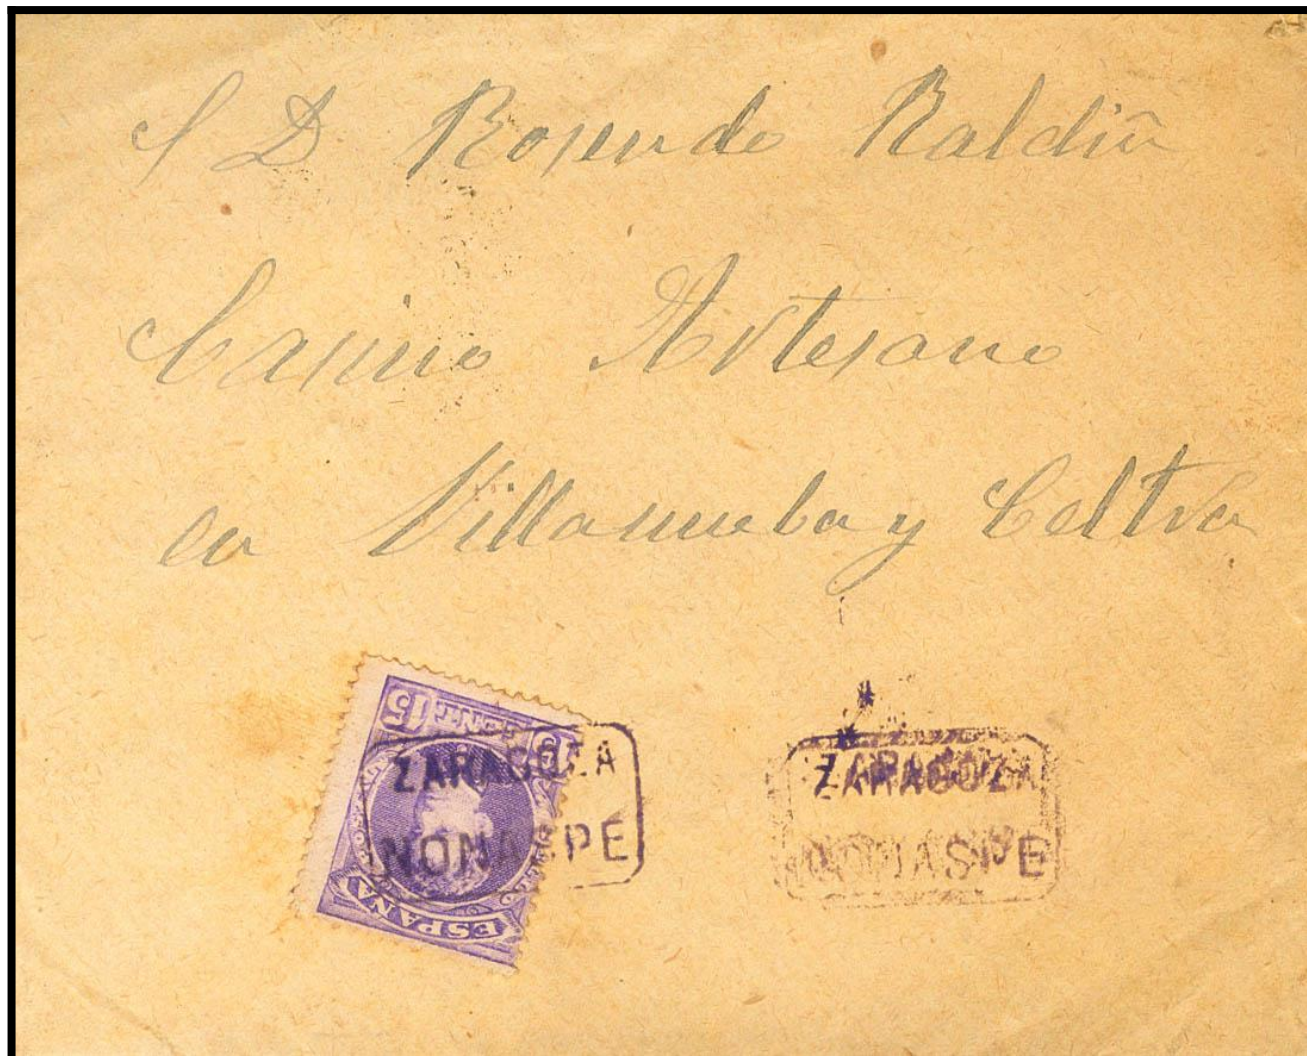 S D Rosendo Raldiñ
Casino Artesano
en Villanueba y Celtru
15 CENT 15
ESPAÑA
ZARAGOZA
NONASPE
ZARAGOZA
NONASPE